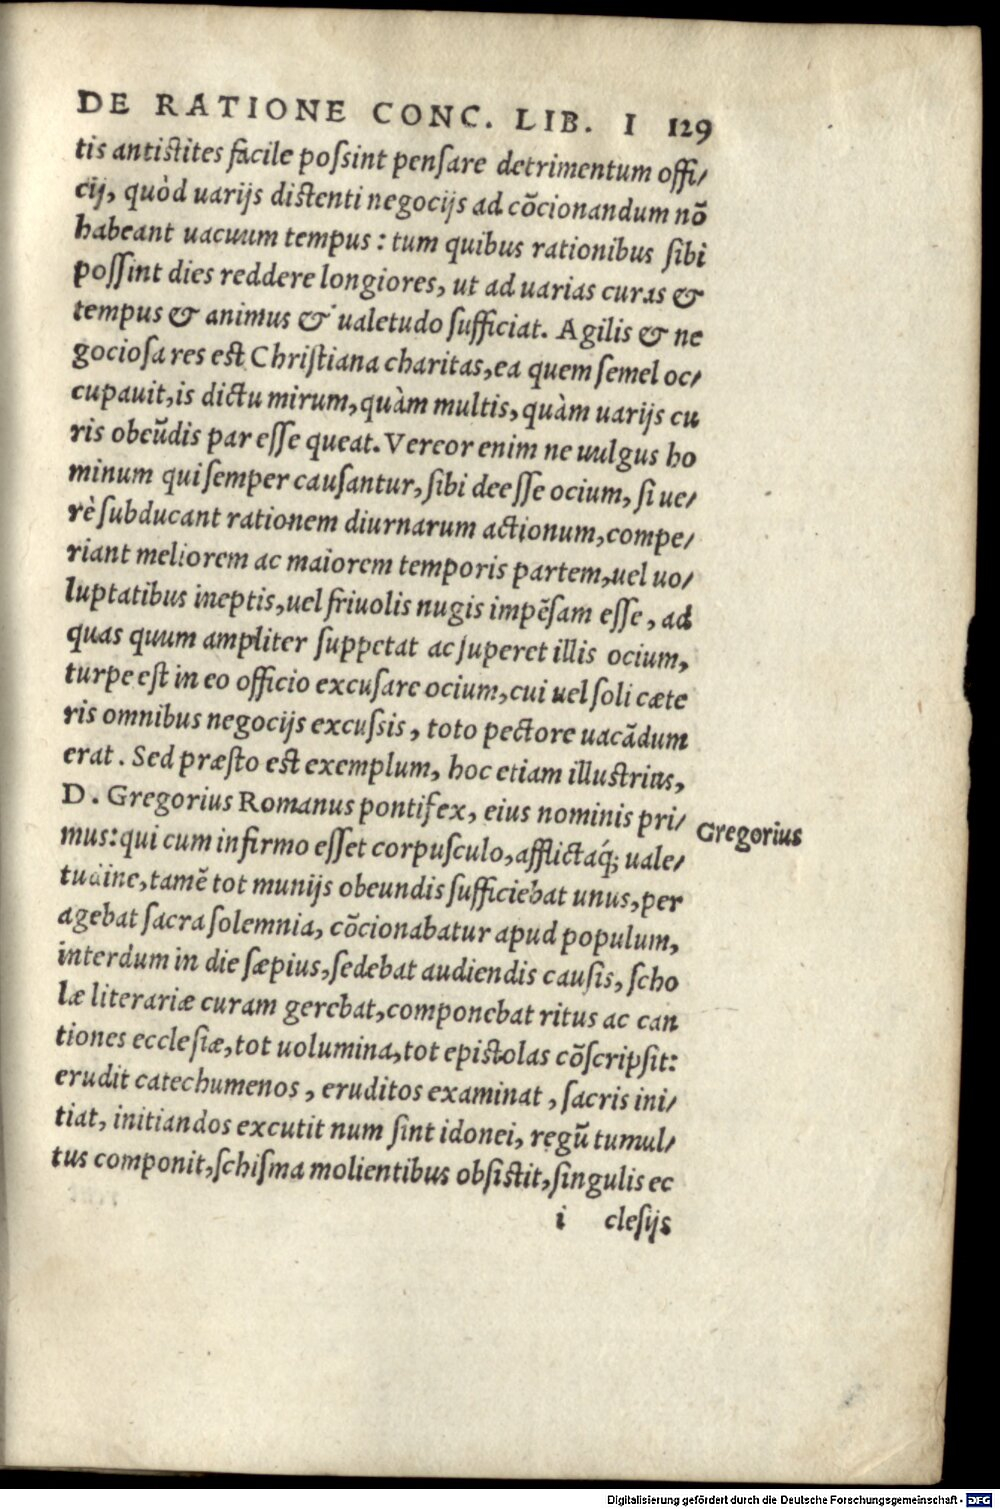 DE RATIONE CONC. LIB. I 129
tis antistites facile possint pensare detrimentum offi/
cij, quòd uarijs distenti negocijs ad cõcionandum nõ
habeant uacuum tempus: tum quibus rationibus sibi
possint dies reddere longiores, ut ad uarias curas &
tempus & animus & ualetudo sufficiat. Agilis & ne
gociosa res est Christiana charitas, ea quem semel oc/
cupauit, is dictu mirum, quàm multis, quàm uarijs cu
ris obeũdis par esse queat. Vereor enim ne uulgus ho
minum qui semper causantur, sibi deesse ocium, si ue/
rè subducant rationem diurnarum actionum, compe/
riant meliorem ac maiorem temporis partem, uel uo/
luptatibus ineptis, uel friuolis nugis impẽsam esse, ad
quas quum ampliter suppetat ac superet illis ocium,
turpe est in eo officio excusare ocium, cui uel soli cæte
ris omnibus negocijs excussis, toto pectore uacãdum
erat. Sed præsto est exemplum, hoc etiam illustrius,
D. Gregorius Romanus pontifex, eius nominis pri/
Gregorius
mus: qui cum infirmo esset corpusculo, afflictaq́; uale/
tudine, tamẽ tot munijs obeundis sufficiebat unus, per
agebat sacra solemnia, cõcionabatur apud populum,
interdum in die sæpius, sedebat audiendis causis, scho
læ literariæ curam gerebat, componebat ritus ac can
tiones ecclesiæ, tot uolumina, tot epistolas cõscripsit:
erudit catechumenos, eruditos examinat, sacris ini/
tiat, initiandos excutit num sint idonei, regũ tumul/
tus componit, schisma molientibus obsistit, singulis ec
i clesijs
Digitalisierung gefördert durch die Deutsche Forschungsgemeinschaft - DFG